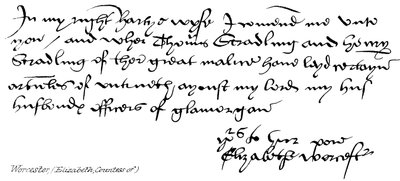 In my right harty wyse I comend me unto
you / and wher Thom̃s Stradling and henry
Stradling of ther great malice have layd certayn
articles of untrueth ayenst my lorde my hus
husbonds officers of glamorgan
yo{rs} to hur powr
Elizabeth Worcest{r}
Worcester (Elizabeth, Countess of)